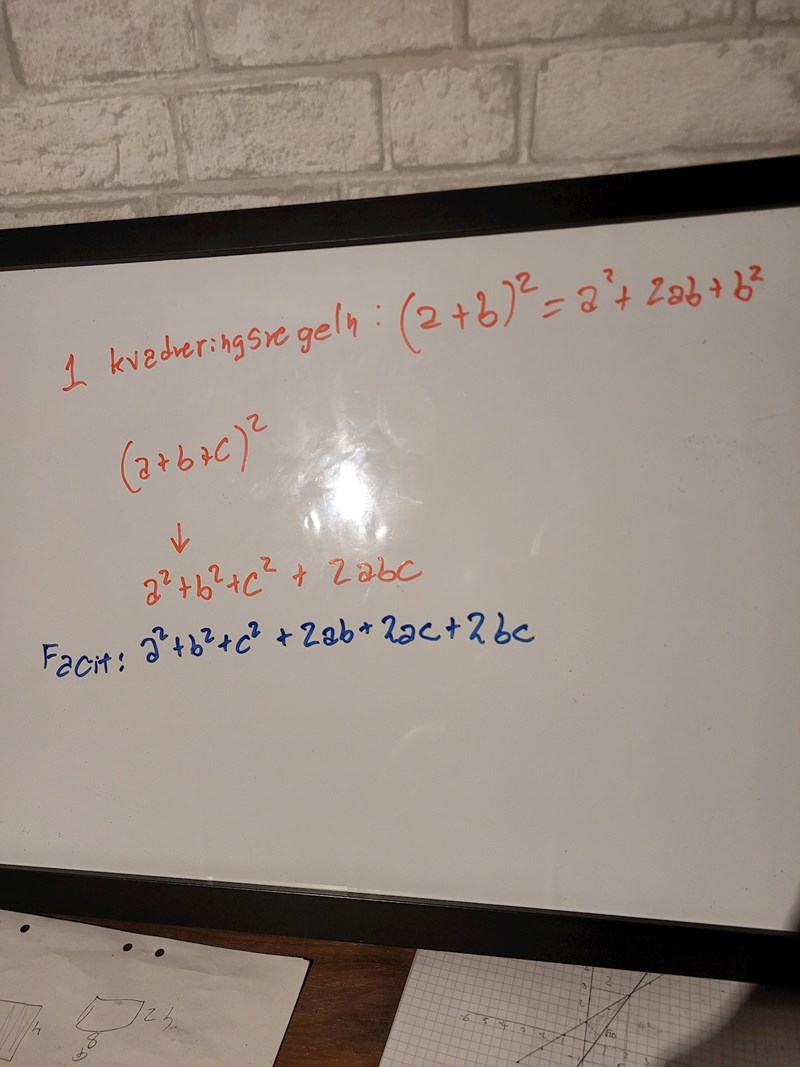 1 kvadreringsregeln: (a+b)² = a² + 2ab + b²
(a+b+c)²
↓
a²+b²+c² + 2abc
Facit: a²+b²+c² + 2ab + 2ac + 2bc